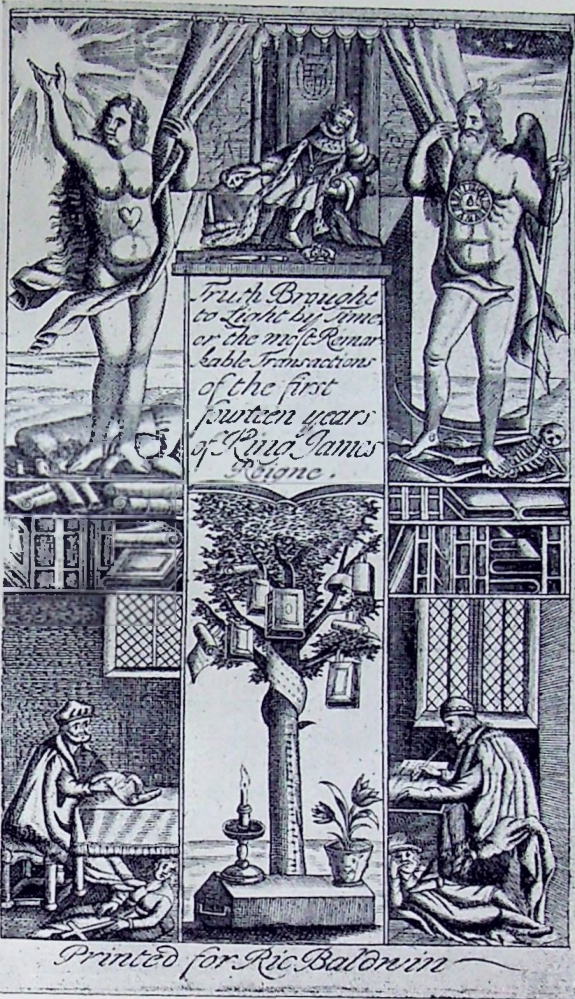 Truth Brought
to Light by Time.
or the most Remar
kable Transactions
of the first
fourteen years
of King James
Reigne.
Printed for Ric Baldwin